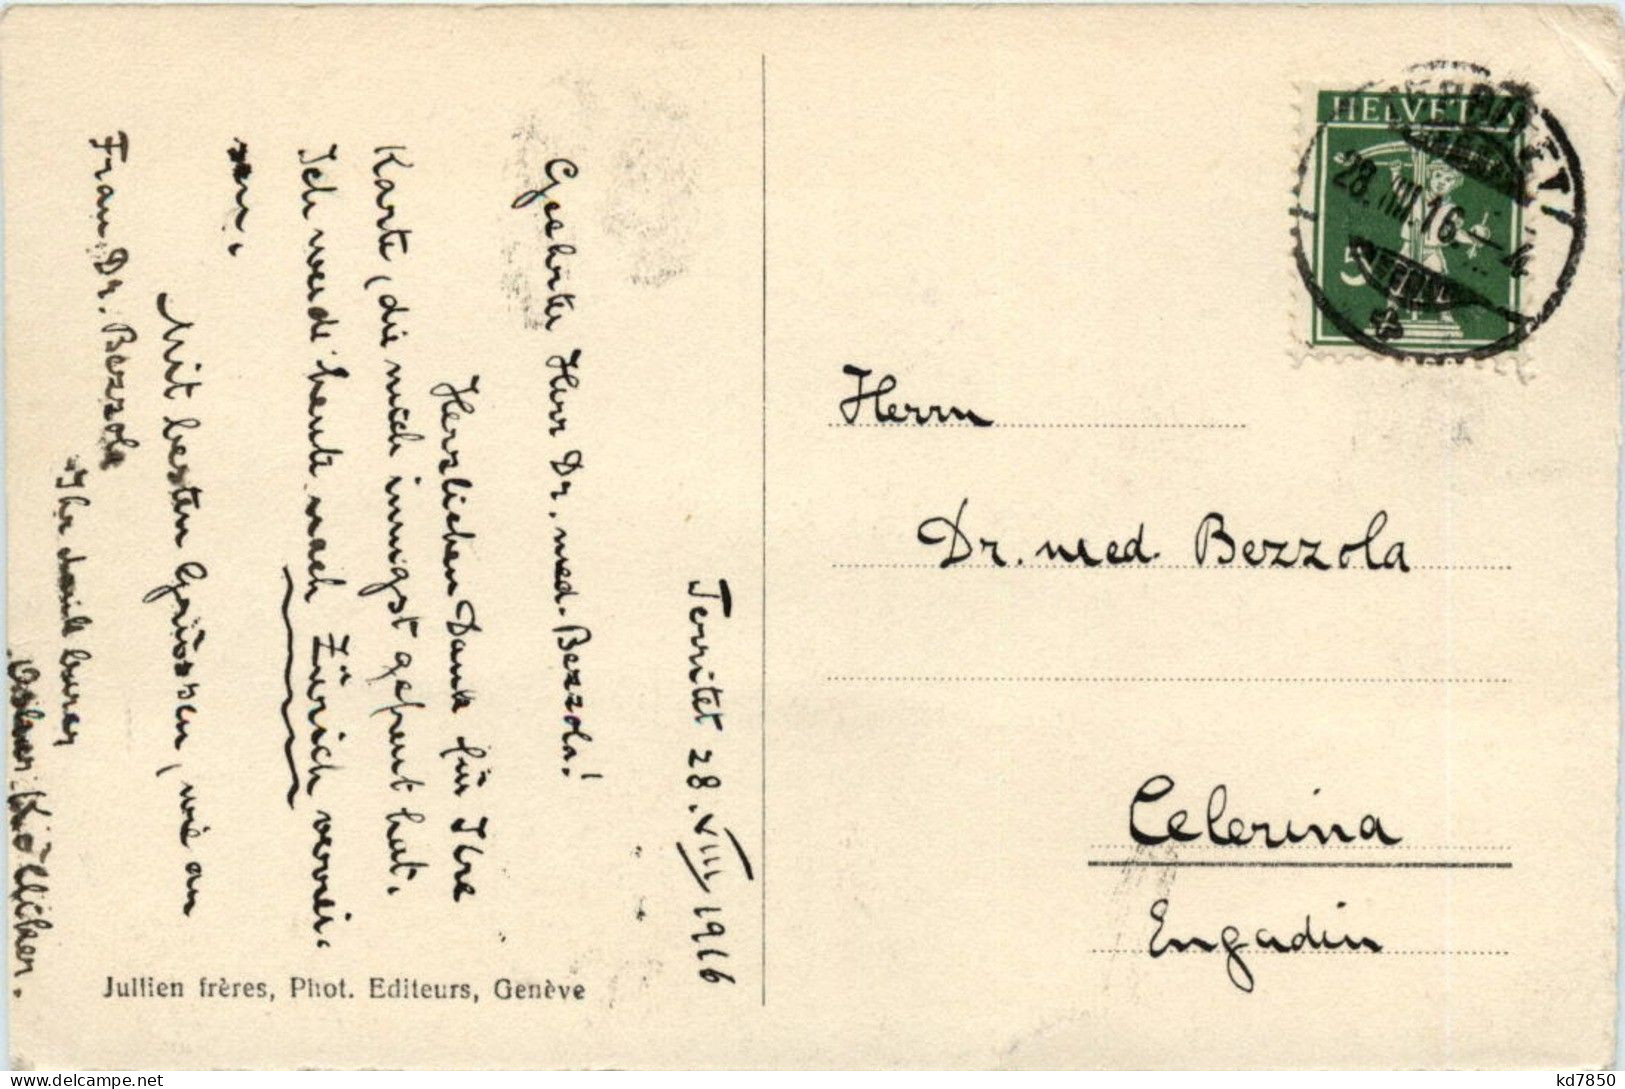 Territet 28. VIII 1916
Geehrter Herr Dr. med. Bezzola!
Herzlichen Dank für Ihre
Karte, die mich innigst gefreut hat.
Ich werde heute nach Zürich verrei-
sen.
Mit besten Grüssen, wie an
Frau Dr. Bezzola
Ihr dankbarer
Jullien frères, Phot. Editeurs, Genève
HELVETIA
5
TERRITET
28. VIII. 16.
Herrn
Dr. med. Bezzola
Celerina
Engadin
delcampe.net
kd7850